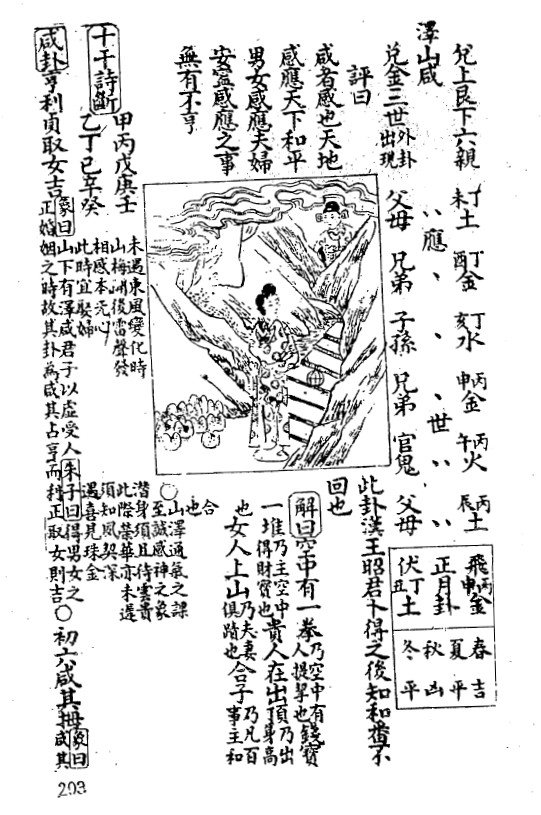 兌上艮下六親 丁未土 丁酉金 丁亥水 丙申金 丙午火 丙辰土
澤山咸 、、應 、 、 、世 、、 、、
兌金三世外卦出現 父母 兄弟 子孫 兄弟 官鬼 父母
飛丙申金 春吉
正月卦 夏平
伏丁丑土 秋凶
冬平
評曰
咸者感也天地
感應天下和平
男女感應夫婦
安寧感應之事
無有不亨
此卦漢王昭君卜得之後知和番不
回也
解曰空中有一拳乃空中有人提挈也錢寶
一堆乃主空中得財寶也貴人在出頂乃出身高
也女人上山乃夫妻俱踏也合子乃凡百事主和
合也
○山澤通氣之課
至誠感神之象
十干詩斷
甲丙戊庚壬 未遇東風變化時 潛身須且待
山梅 後雷聲發 此際榮華亦未遲
乙丁己辛癸 相感本无心 須知風契深
此時宜娶婦 遇喜見珠金
咸卦亨利貞取女吉象曰山下有澤咸君子以虛受人朱子曰得男女之
正婚姻之時故其卦為咸其占亨而利正取女則吉○初六咸其拇象曰咸其
209